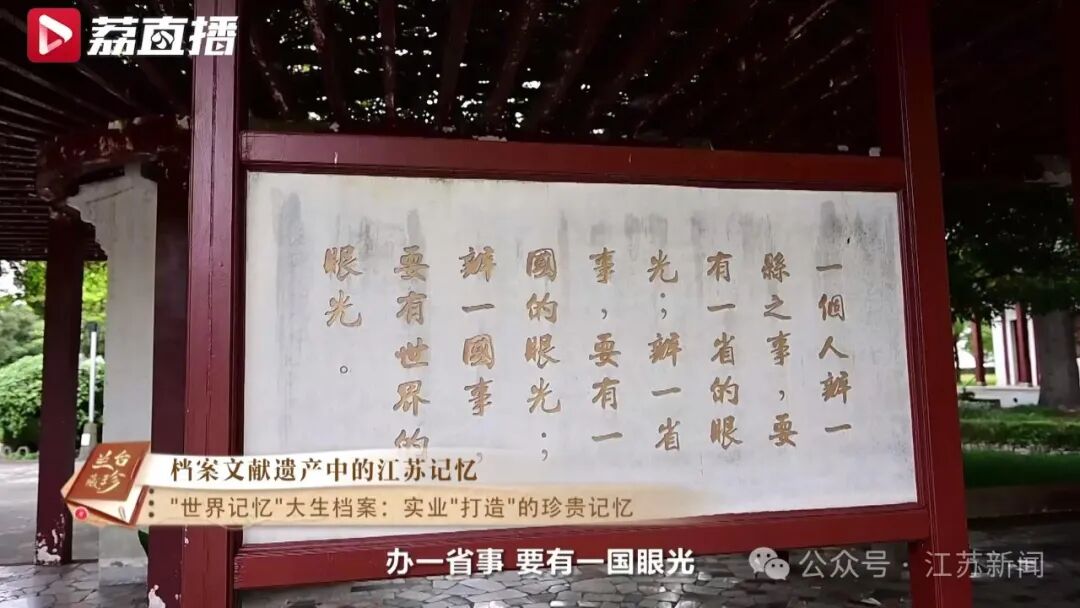 荔直播
一個人辦一
縣之事，要
有一省的眼
光；辦一省
事，要有一
國的眼光；
辦一國事，
要有世界的
眼光。
兰台
藏珍
档案文献遗产中的江苏记忆
"世界记忆"大生档案：实业"打造"的珍贵记忆
办一省事 要有一国眼光
公众号 · 江苏新闻